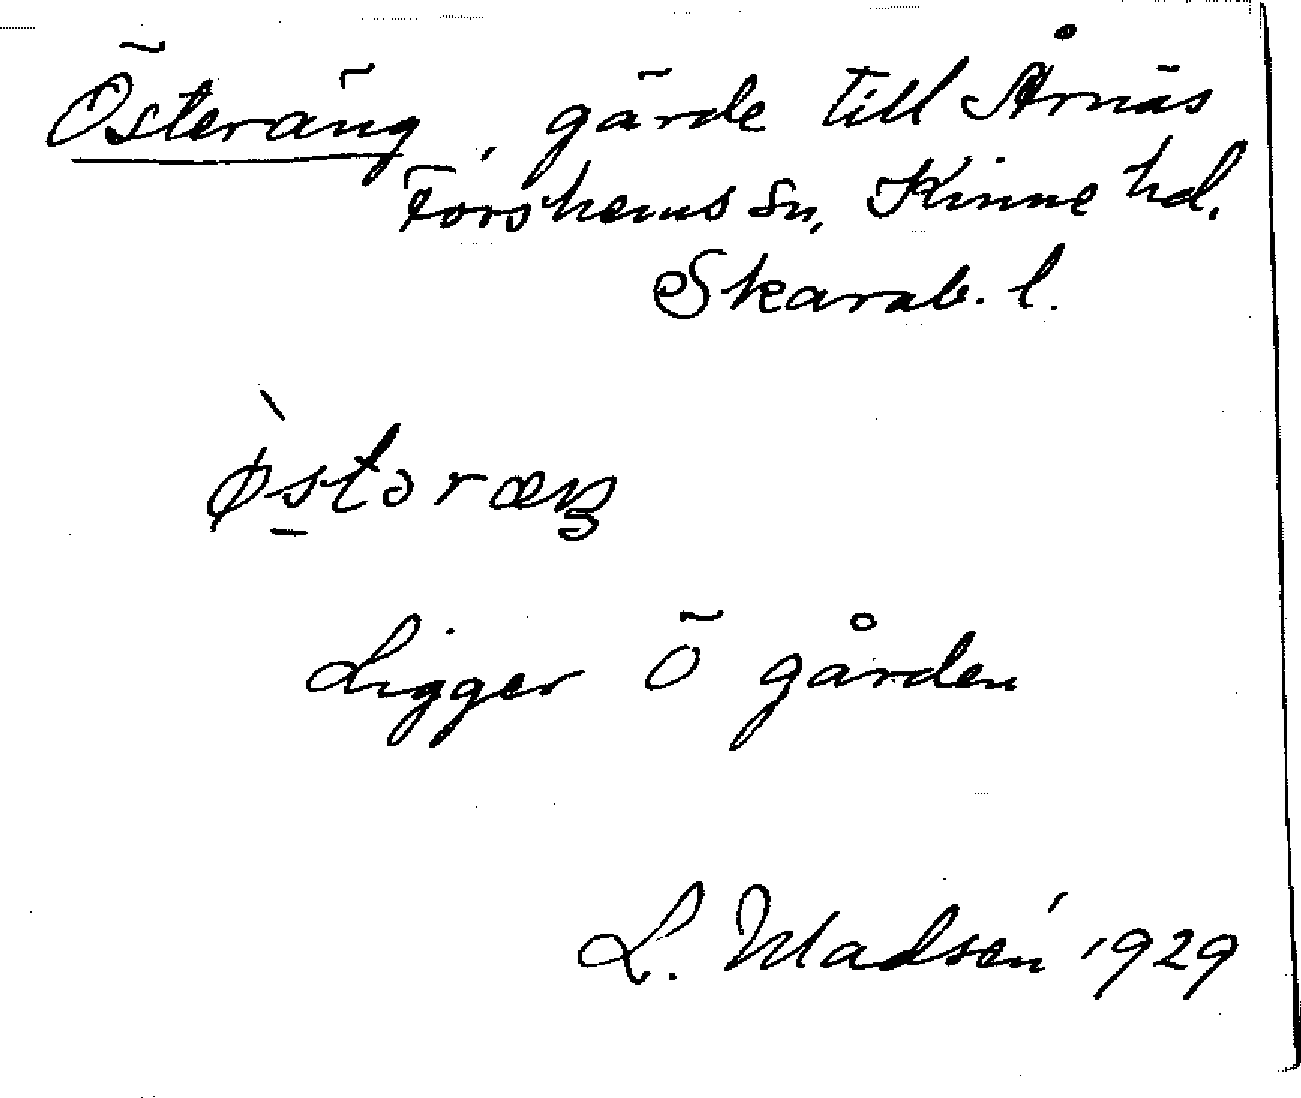 Österäng, gärde till Årnäs
Forshems sn, Kinne hd.
Skarab. l.
ø̀s̠təræŋ
Ligger Ö gården
L. Madsén 1929